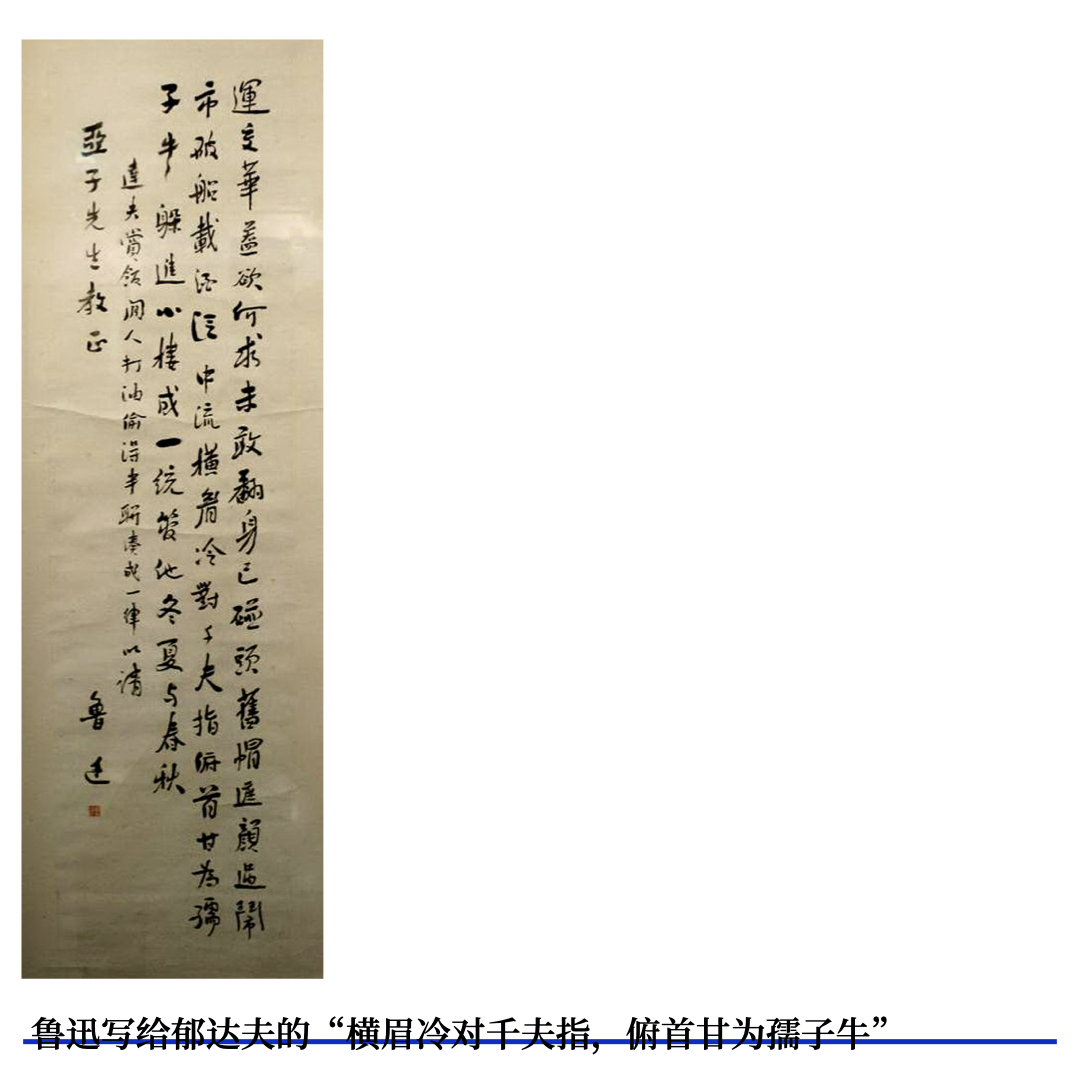 運交華蓋欲何求未敢翻身已碰頭舊帽遮顔過鬧
市破船載酒泛中流横眉冷對千夫指俯首甘為孺
子牛躲進小樓成一統管他冬夏与春秋
達夫賞飯閒人打油偷得半聯湊成一律以請
亞子先生教正
魯迅
鲁迅写给郁达夫的“横眉冷对千夫指，俯首甘为孺子牛”